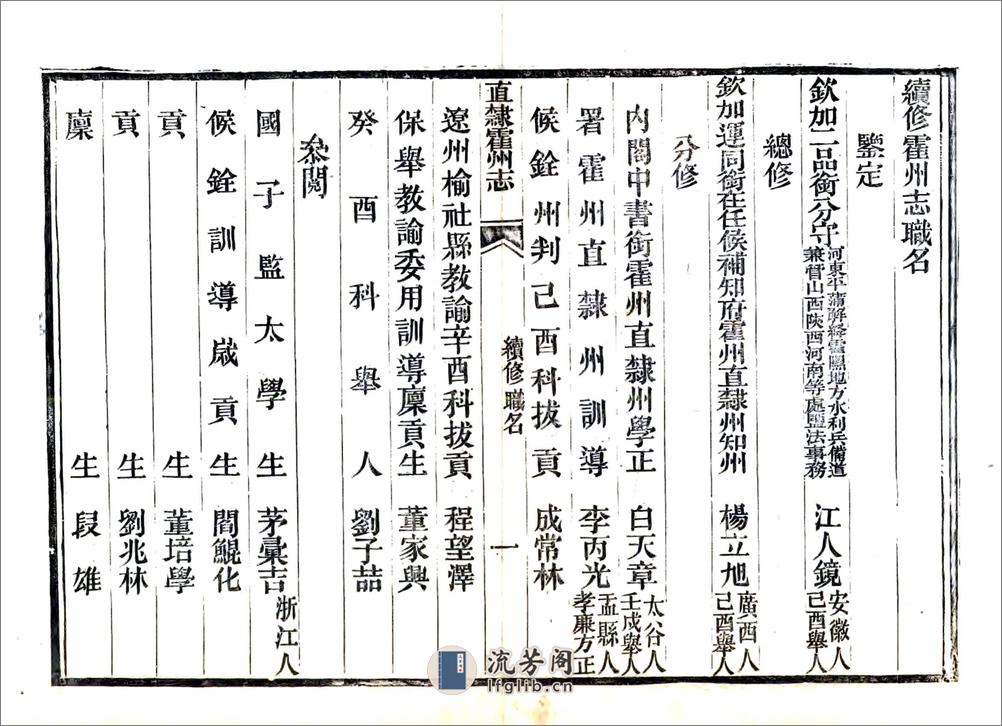 續修霍州志職名
鑒定
欽加二品銜分守河東平蒲解絳霍隰地方水利兵備道兼管山西陝西河南等處鹽法事務 江人鏡 安徽人己酉舉人
總修
欽加運同銜在任候補知府霍州直隸州知州 楊立旭 廣西人己酉舉人
分修
內閣中書銜霍州直隸州學正 白天章 太谷人壬戌舉人
署霍州直隸州訓導 李丙光 盂縣人孝廉方正
候銓州判己酉科拔貢 成常林
直隸霍州志 續修職名 一
遼州榆社縣教諭辛酉科拔貢 程望澤
保舉教諭委用訓導廩貢生 董家興
癸酉科舉人 劉子喆
叅閱
國子監太學生 茅彙吉 浙江人
候銓訓導歲貢生 閻鯤化
貢生 董培學
貢生 劉兆林
廩生 段雄
流芳阁
lfglib.cn